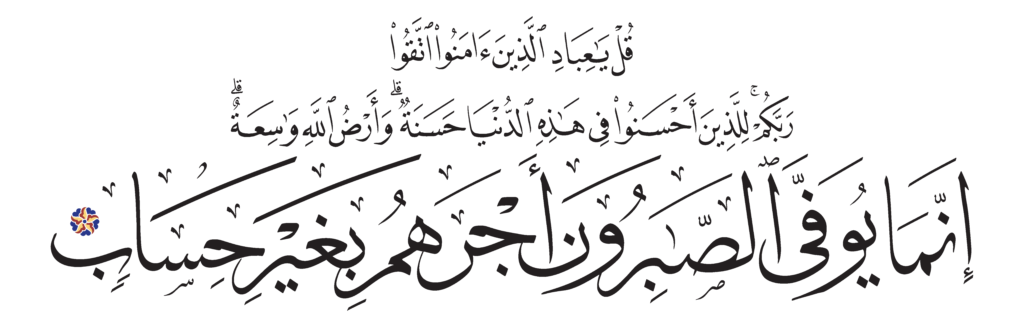 قُلْ يَٰعِبَادِ ٱلَّذِينَ ءَامَنُوا۟ ٱتَّقُوا۟
رَبَّكُمْ ۚ لِلَّذِينَ أَحْسَنُوا۟ فِى هَٰذِهِ ٱلدُّنْيَا حَسَنَةٌ ۗ وَأَرْضُ ٱللَّهِ وَٰسِعَةٌ ۗ
إِنَّمَا يُوَفَّى ٱلصَّٰبِرُونَ أَجْرَهُم بِغَيْرِ حِسَابٍ